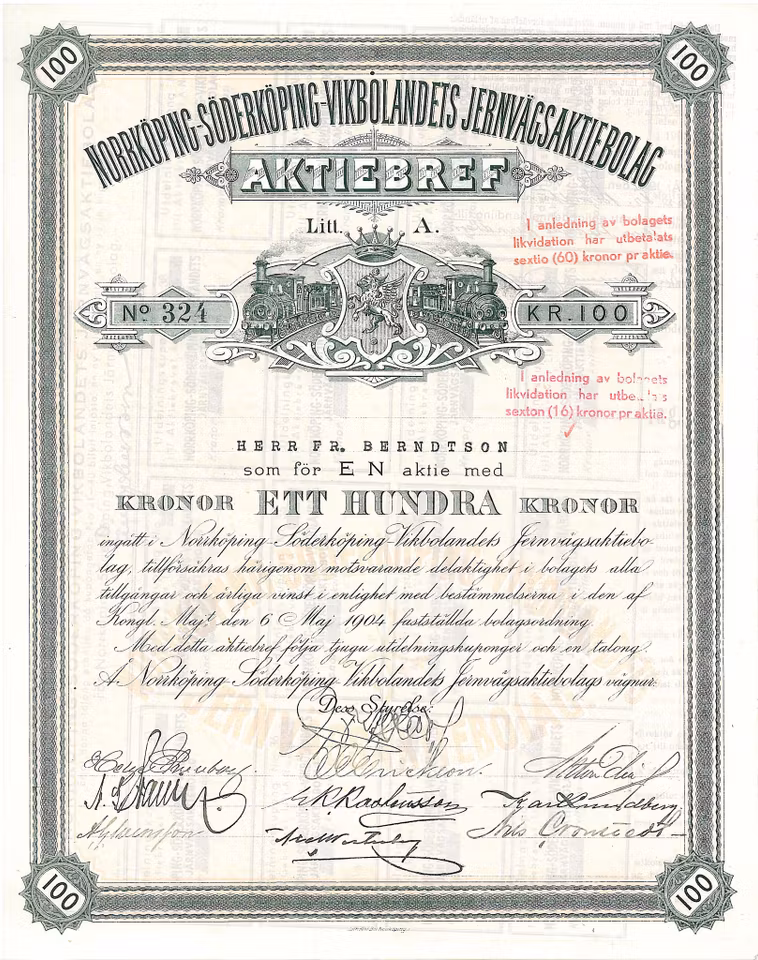 100
100
NORRKÖPING-SÖDERKÖPING-VIKBOLANDETS JERNVÄGSAKTIEBOLAG
AKTIEBREF
Litt. A.
I anledning av bolagets
likvidation har utbetalats
sextio (60) kronor pr aktie.
No 324
KR. 100
I anledning av bolagets
likvidation har utbetalats
sexton (16) kronor pr aktie.
HERR FR. BERNDTSON
som för EN aktie med
KRONOR ETT HUNDRA KRONOR
ingått i Norrköping-Söderköping-Vikbolandets Jernvägsaktiebo-
lag, tillförsäkras härigenom motsvarande delaktighet i bolagets alla
tillgångar och årliga vinst i enlighet med bestämmelserna i den af
Kongl. Maj:t den 6 Maj 1904 fastställda bolagsordning.
Med detta aktiebref följa tjugu utdelningskuponger och en talong.
Å Norrköping-Söderköping-Vikbolandets Jernvägsaktiebolags vägnar:
Dess Styrelse:
100
100